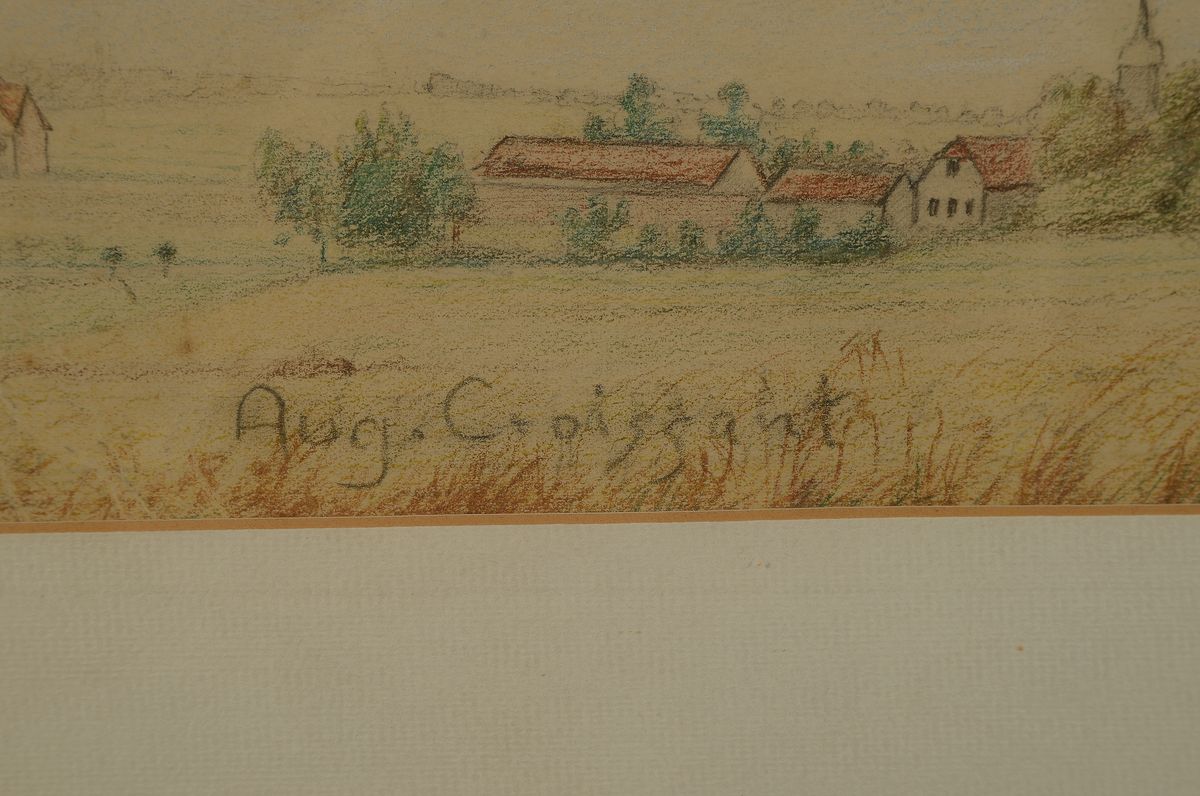 Aug. Croissant